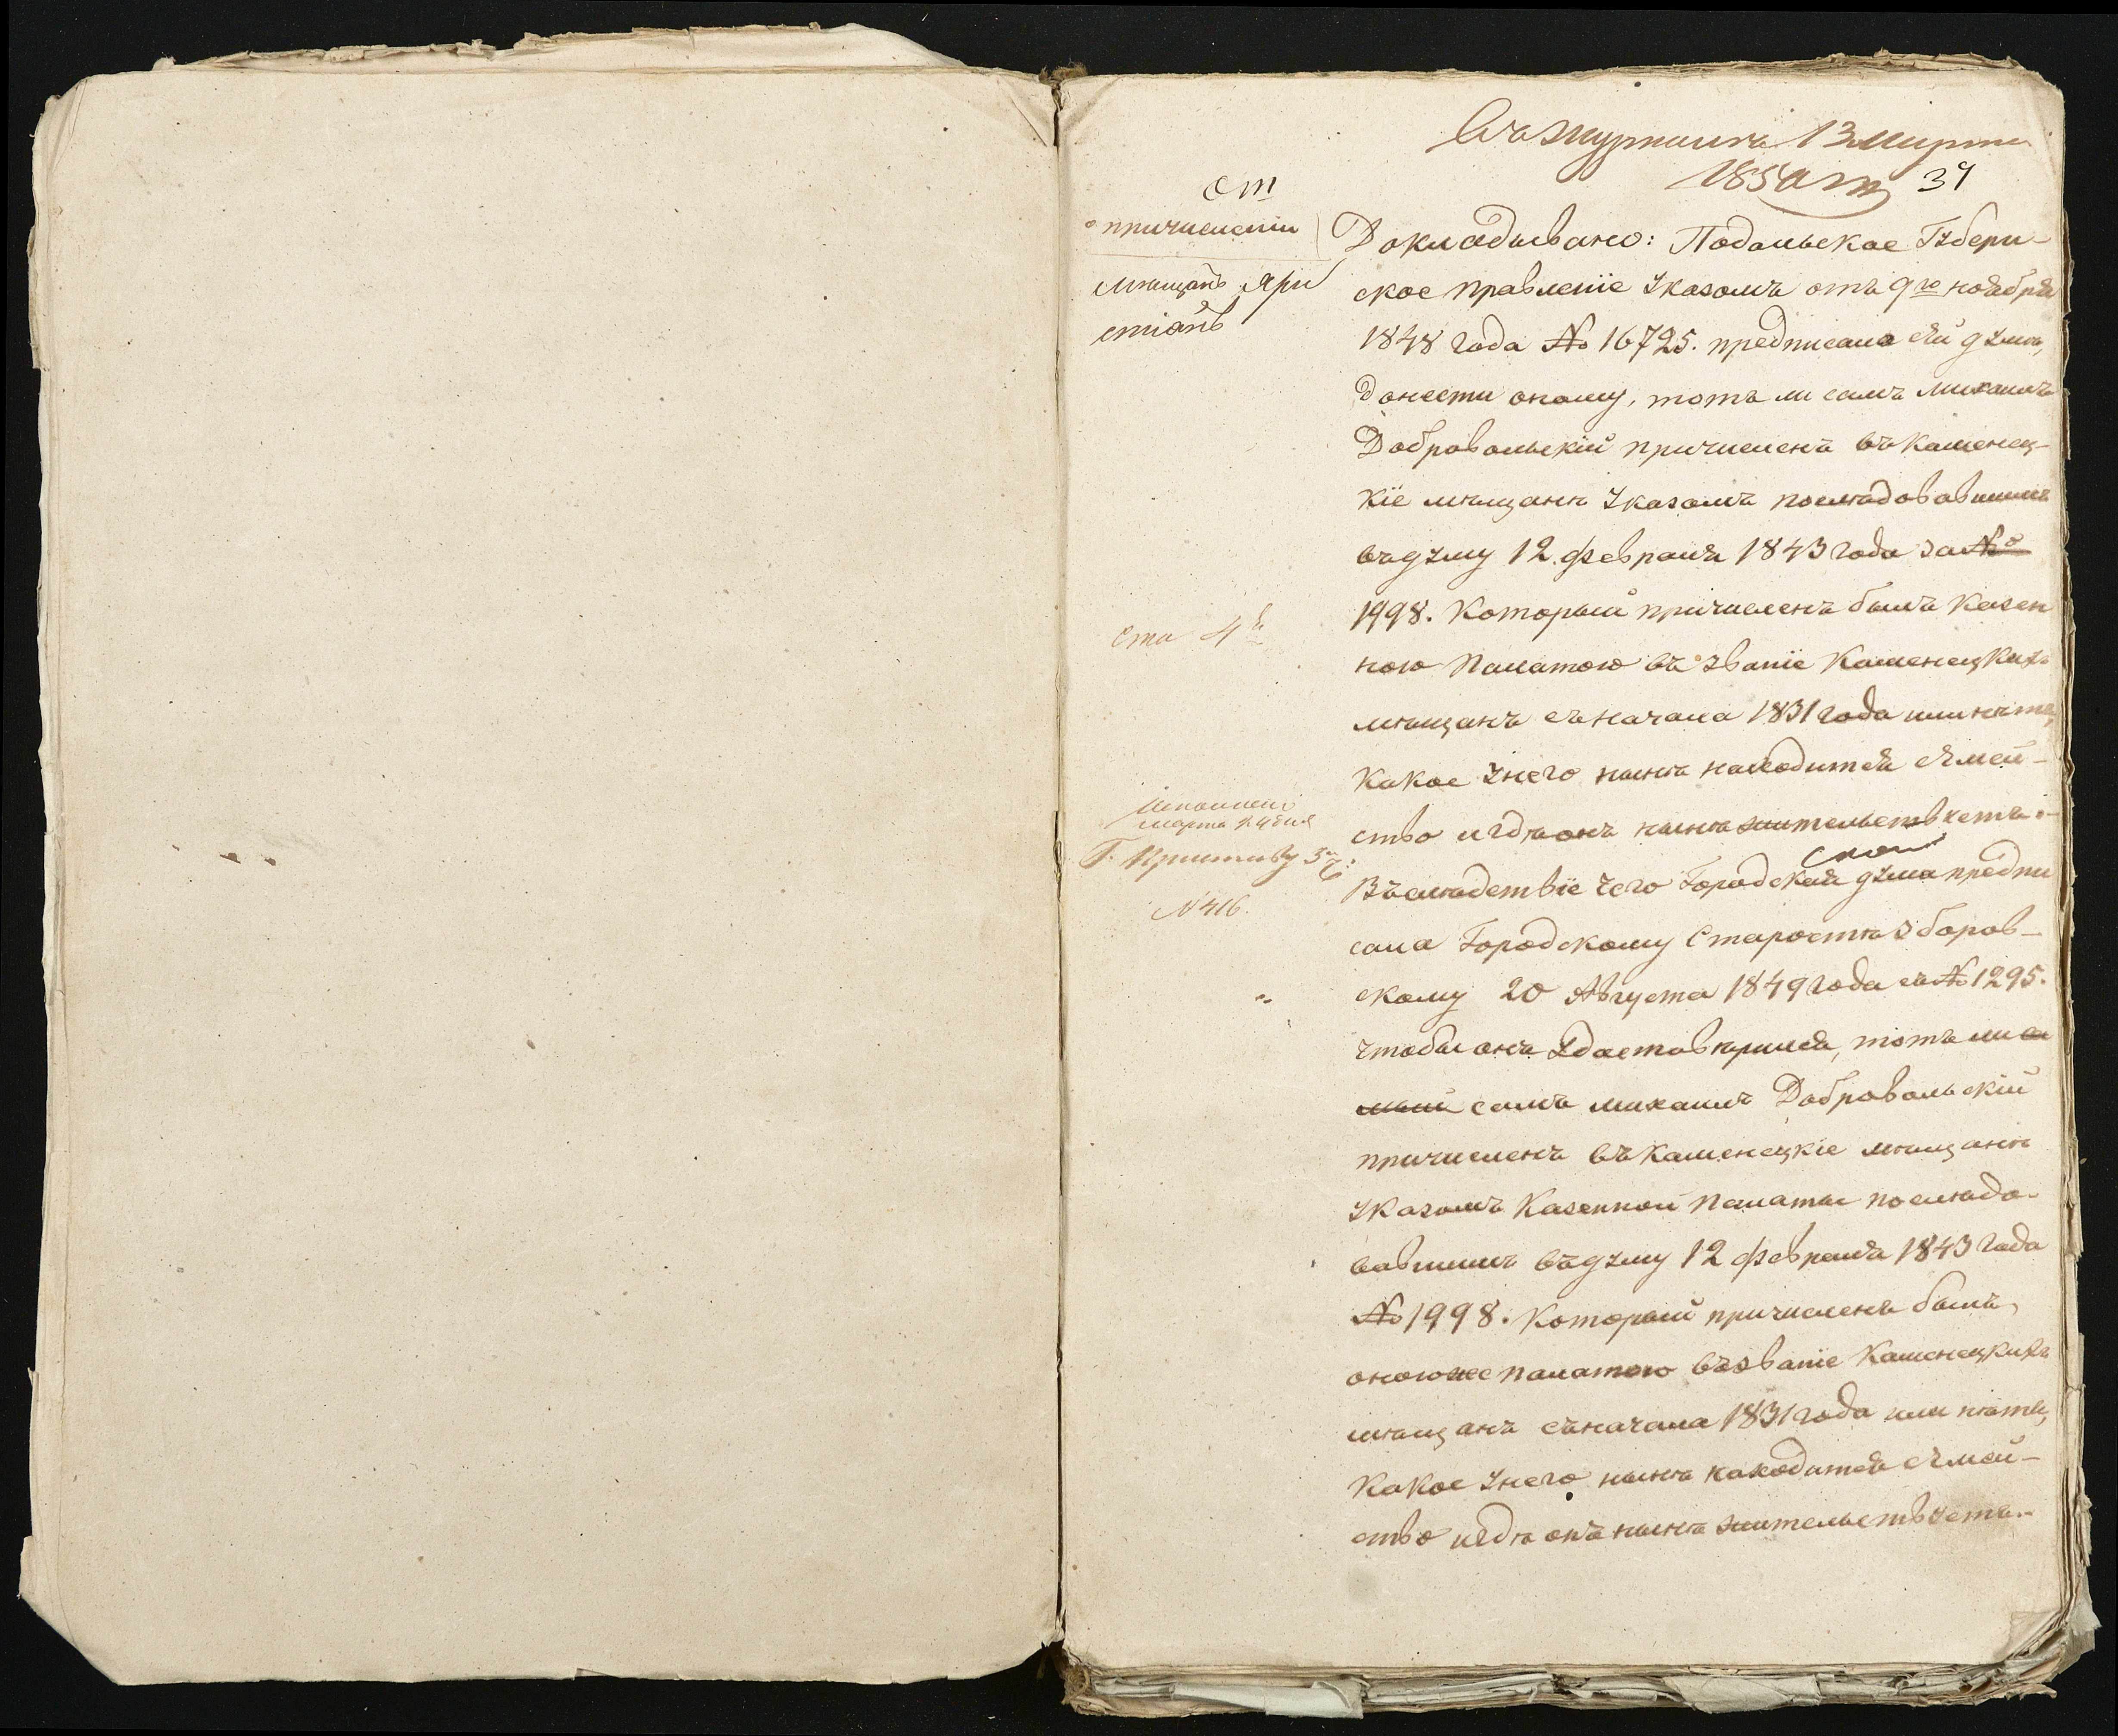 Въ журналъ 13 Марта
1850 г.
34
Ст
о причисленіи
мѣщанъ Хри
стіанъ
Докладывано: Подольское Губерн-
ское правленіе Указомъ отъ 9го ноября
1848 года № 16725. предписало сей думѣ,
донести оному, тотъ ли самъ Михаилъ
Добровольскій причисленъ въ Каменец-
кіе мѣщане Указомъ послѣдовавшимъ
въ думу 12 февраля 1843 года за №
1998. Который причисленъ былъ Казен
ною Палатою въ званіе Каменецкихъ
мѣщанъ съ начала 1831 года или нѣтъ,
Какое у него нынѣ находится сѣмей-
ство и гдѣ онъ нынѣ жительствуетъ.-
Въ слѣдствіе чего Городская дума предпи
сала Городскому Старостѣ Зборов-
скому 20 Августа 1849 года за № 1295.
чтобы онъ удостовѣрился, тотъ ли са
мый самъ Михаилъ Добровольскій
причисленъ въ Каменецкіе мѣщане
Указомъ Казенной Палаты послѣдо-
вавшимъ въ думу 12 февраля 1843 года
№ 1998. Который причисленъ былъ,
оною же палатою въ званіе Каменецкихъ
мѣщанъ съ начала 1831 года или нѣтъ,
Какое у него нынѣ находится сѣмей-
ство и гдѣ онъ нынѣ жительствуетъ.-
Ста 4й
марта
Г. Приставу 3й ч:
№ 416.